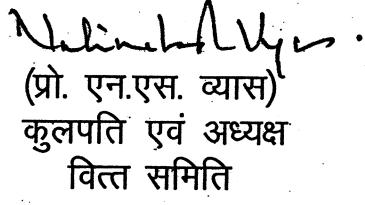 (प्रो. एन.एस. व्यास)
कुलपति एवं अध्यक्ष
वित्त समिति